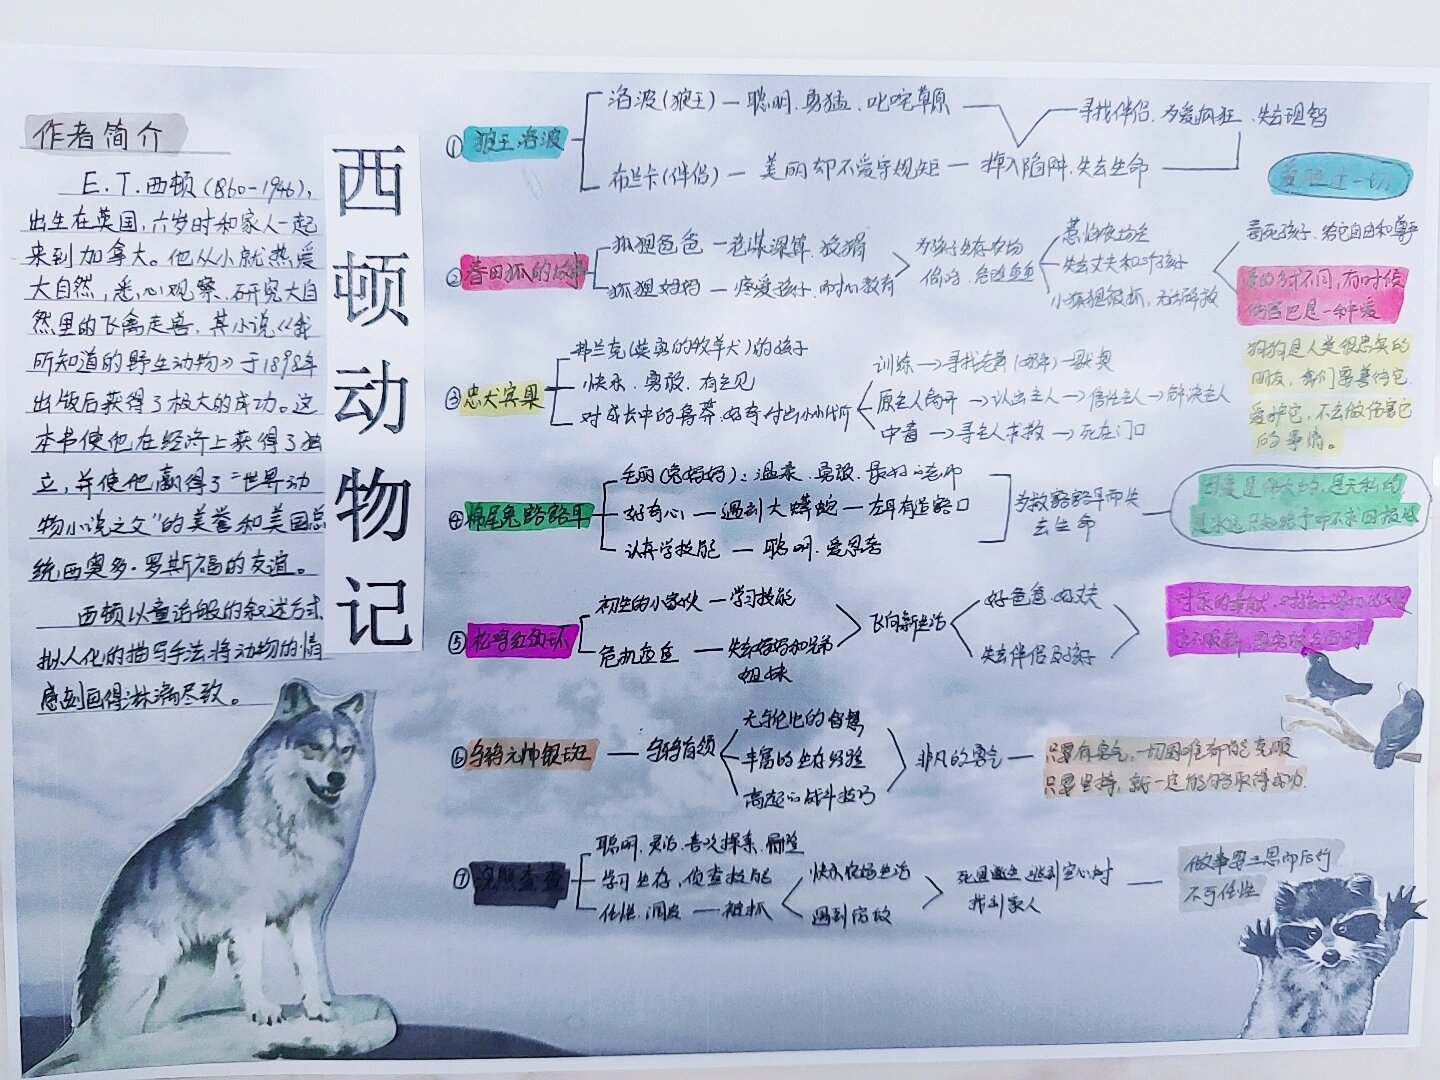 作者简介
E.T.西顿(1860-1946),
出生在英国,六岁时和家人一起
来到加拿大。他从小就热爱
大自然,悉心观察、研究大自
然里的飞禽走兽,其小说《我
所知道的野生动物》于1898年
出版后获得了极大的成功。这
本书使他在经济上获得了独
立,并使他赢得了“世界动
物小说之父”的美誉和美国总
统西奥多·罗斯福的友谊。
西顿以童话般的叙述方式
拟人化的描写手法将动物的情
感刻画得淋漓尽致。
西顿动物记
①狼王洛波
洛波(狼王)—聪明、勇猛、叱咤草原
布兰卡(伴侣)—美丽却不爱守规矩—掉入陷阱、失去生命
寻找伴侣、为爱疯狂、失去理智
爱胜过一切
②春田狐的故事
狐狸爸爸—老谋深算、狡猾
狐狸妈妈—疼爱孩子、耐心教育
为孩子生存农场
偷鸡、危险重重
惹怕农场主
失去丈夫和3个孩子
小狐狸被抓,无法解救
毒死孩子、给它自由和尊严
爱的方式不同,有时候
伤害也是一种爱
③忠犬宾果
弗兰克(英勇的牧羊犬)的孩子
快乐、勇敢、有主见
对成长中的鲁莽、好奇付出小小代价
训练→寻找老黄(奶牛)—默契
原主人离开→认出主人→信任主人→解决主人
中毒→寻主人求救→死在门口
狗狗是人类很忠实的
朋友,我们要善待它
爱护它,不去做伤害它
的事情。
④棉尾兔豁豁耳
毛丽(兔妈妈):温柔、勇敢、最好的老师
好奇心—遇到大蟒蛇—左耳有道豁口
认真学技能—聪明、爱思考
为救豁豁耳而失
去生命
母爱是伟大的,是无私的
是永远只知给予而不求回报的
⑤松鸡红颈环
初生的小家伙—学习技能
危机重重—失去妈妈和兄弟
姐妹
飞向新生活
好爸爸、好丈夫
失去伴侣及孩子
⑥乌鸦元帅银斑—乌鸦首领
无与伦比的智慧
丰富的生存经验
高超的战斗技巧
非凡的勇气—只要有勇气,一切困难都能克服
只要坚持,就一定能够取得成功.
⑦浣熊查查
聪明、灵活、喜欢探索、冒险
学习生存、侦查技能
任性、调皮—被抓
快乐农场生活
遇到窃贼
死里逃生 逃到空心树
找到家人
做事要三思而后行
不可任性